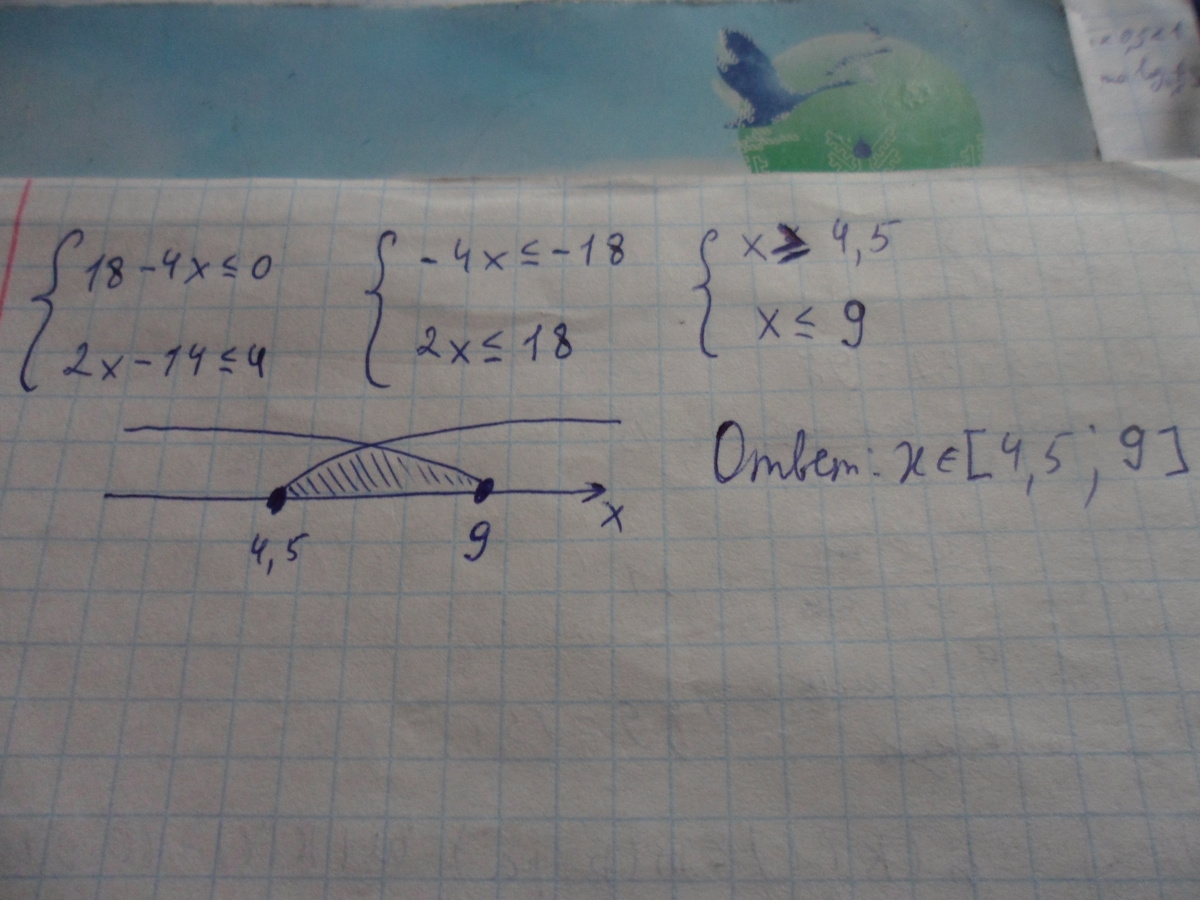 18-4x≤0
2x-14≤4
-4x≤-18
2x≤18
x≥4,5
x≤9
4,5 9 x
Ответ: x∈[4,5; 9]